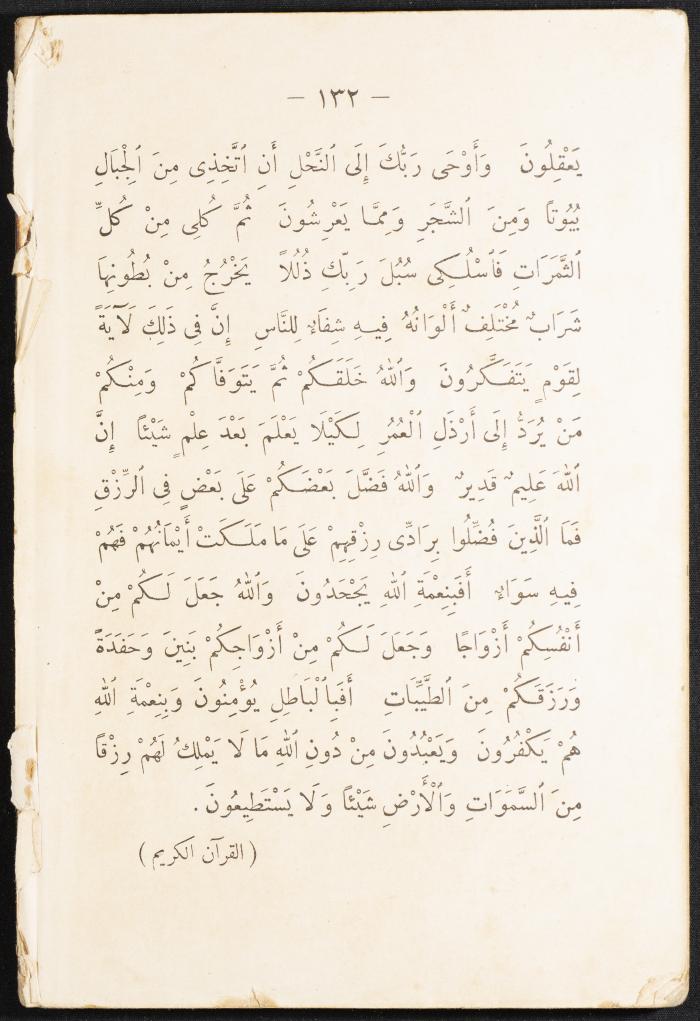 — ١٣٢ —
يَعْقِلُونَ وَأَوْحَى رَبُّكَ إِلَى ٱلنَّحْلِ أَنِ ٱتَّخِذِى مِنَ ٱلْجِبَالِ
بُيُوتًا وَمِنَ ٱلشَّجَرِ وَمِمَّا يَعْرِشُونَ ثُمَّ كُلِى مِنْ كُلِّ
ٱلثَّمَرَاتِ فَٱسْلُكِى سُبُلَ رَبِّكِ ذُلُلاً يَخْرُجُ مِنْ بُطُونِهَا
شَرَابٌ مُخْتَلِفٌ أَلْوَانُهُ فِيهِ شِفَاءٌ لِلنَّاسِ إِنَّ فِى ذَلِكَ لَآيَةً
لِقَوْمٍ يَتَفَكَّرُونَ وَٱللهُ خَلَقَكُمْ ثُمَّ يَتَوَفَّاكُمْ وَمِنْكُمْ
مَنْ يُرَدُّ إِلَى أَرْذَلِ ٱلْعُمُرِ لِكَيْلَا يَعْلَمَ بَعْدَ عِلْمٍ شَيْئًا إِنَّ
ٱللهَ عَلِيمٌ قَدِيرٌ وَٱللهُ فَضَّلَ بَعْضَكُمْ عَلَى بَعْضٍ فِى ٱلرِّزْقِ
فَمَا ٱلَّذِينَ فُضِّلُوا بِرَادِّى رِزْقِهِمْ عَلَى مَا مَلَكَتْ أَيْمَانُهُمْ فَهُمْ
فِيهِ سَوَاءٌ أَفَبِنِعْمَةِ ٱللهِ يَجْحَدُونَ وَٱللهُ جَعَلَ لَكُمْ مِنْ
أَنْفُسِكُمْ أَزْوَاجًا وَجَعَلَ لَكُمْ مِنْ أَزْوَاجِكُمْ بَنِينَ وَحَفَدَةً
وَرَزَقَكُمْ مِنَ ٱلطَّيِّبَاتِ أَفَبِٱلْبَاطِلِ يُؤْمِنُونَ وَبِنِعْمَةِ ٱللهِ
هُمْ يَكْفُرُونَ وَيَعْبُدُونَ مِنْ دُونِ ٱللهِ مَا لَا يَمْلِكُ لَهُمْ رِزْقًا
مِنَ ٱلسَّمَوَاتِ وَٱلْأَرْضِ شَيْئًا وَلَا يَسْتَطِيعُونَ .
(القرآن الكريم)